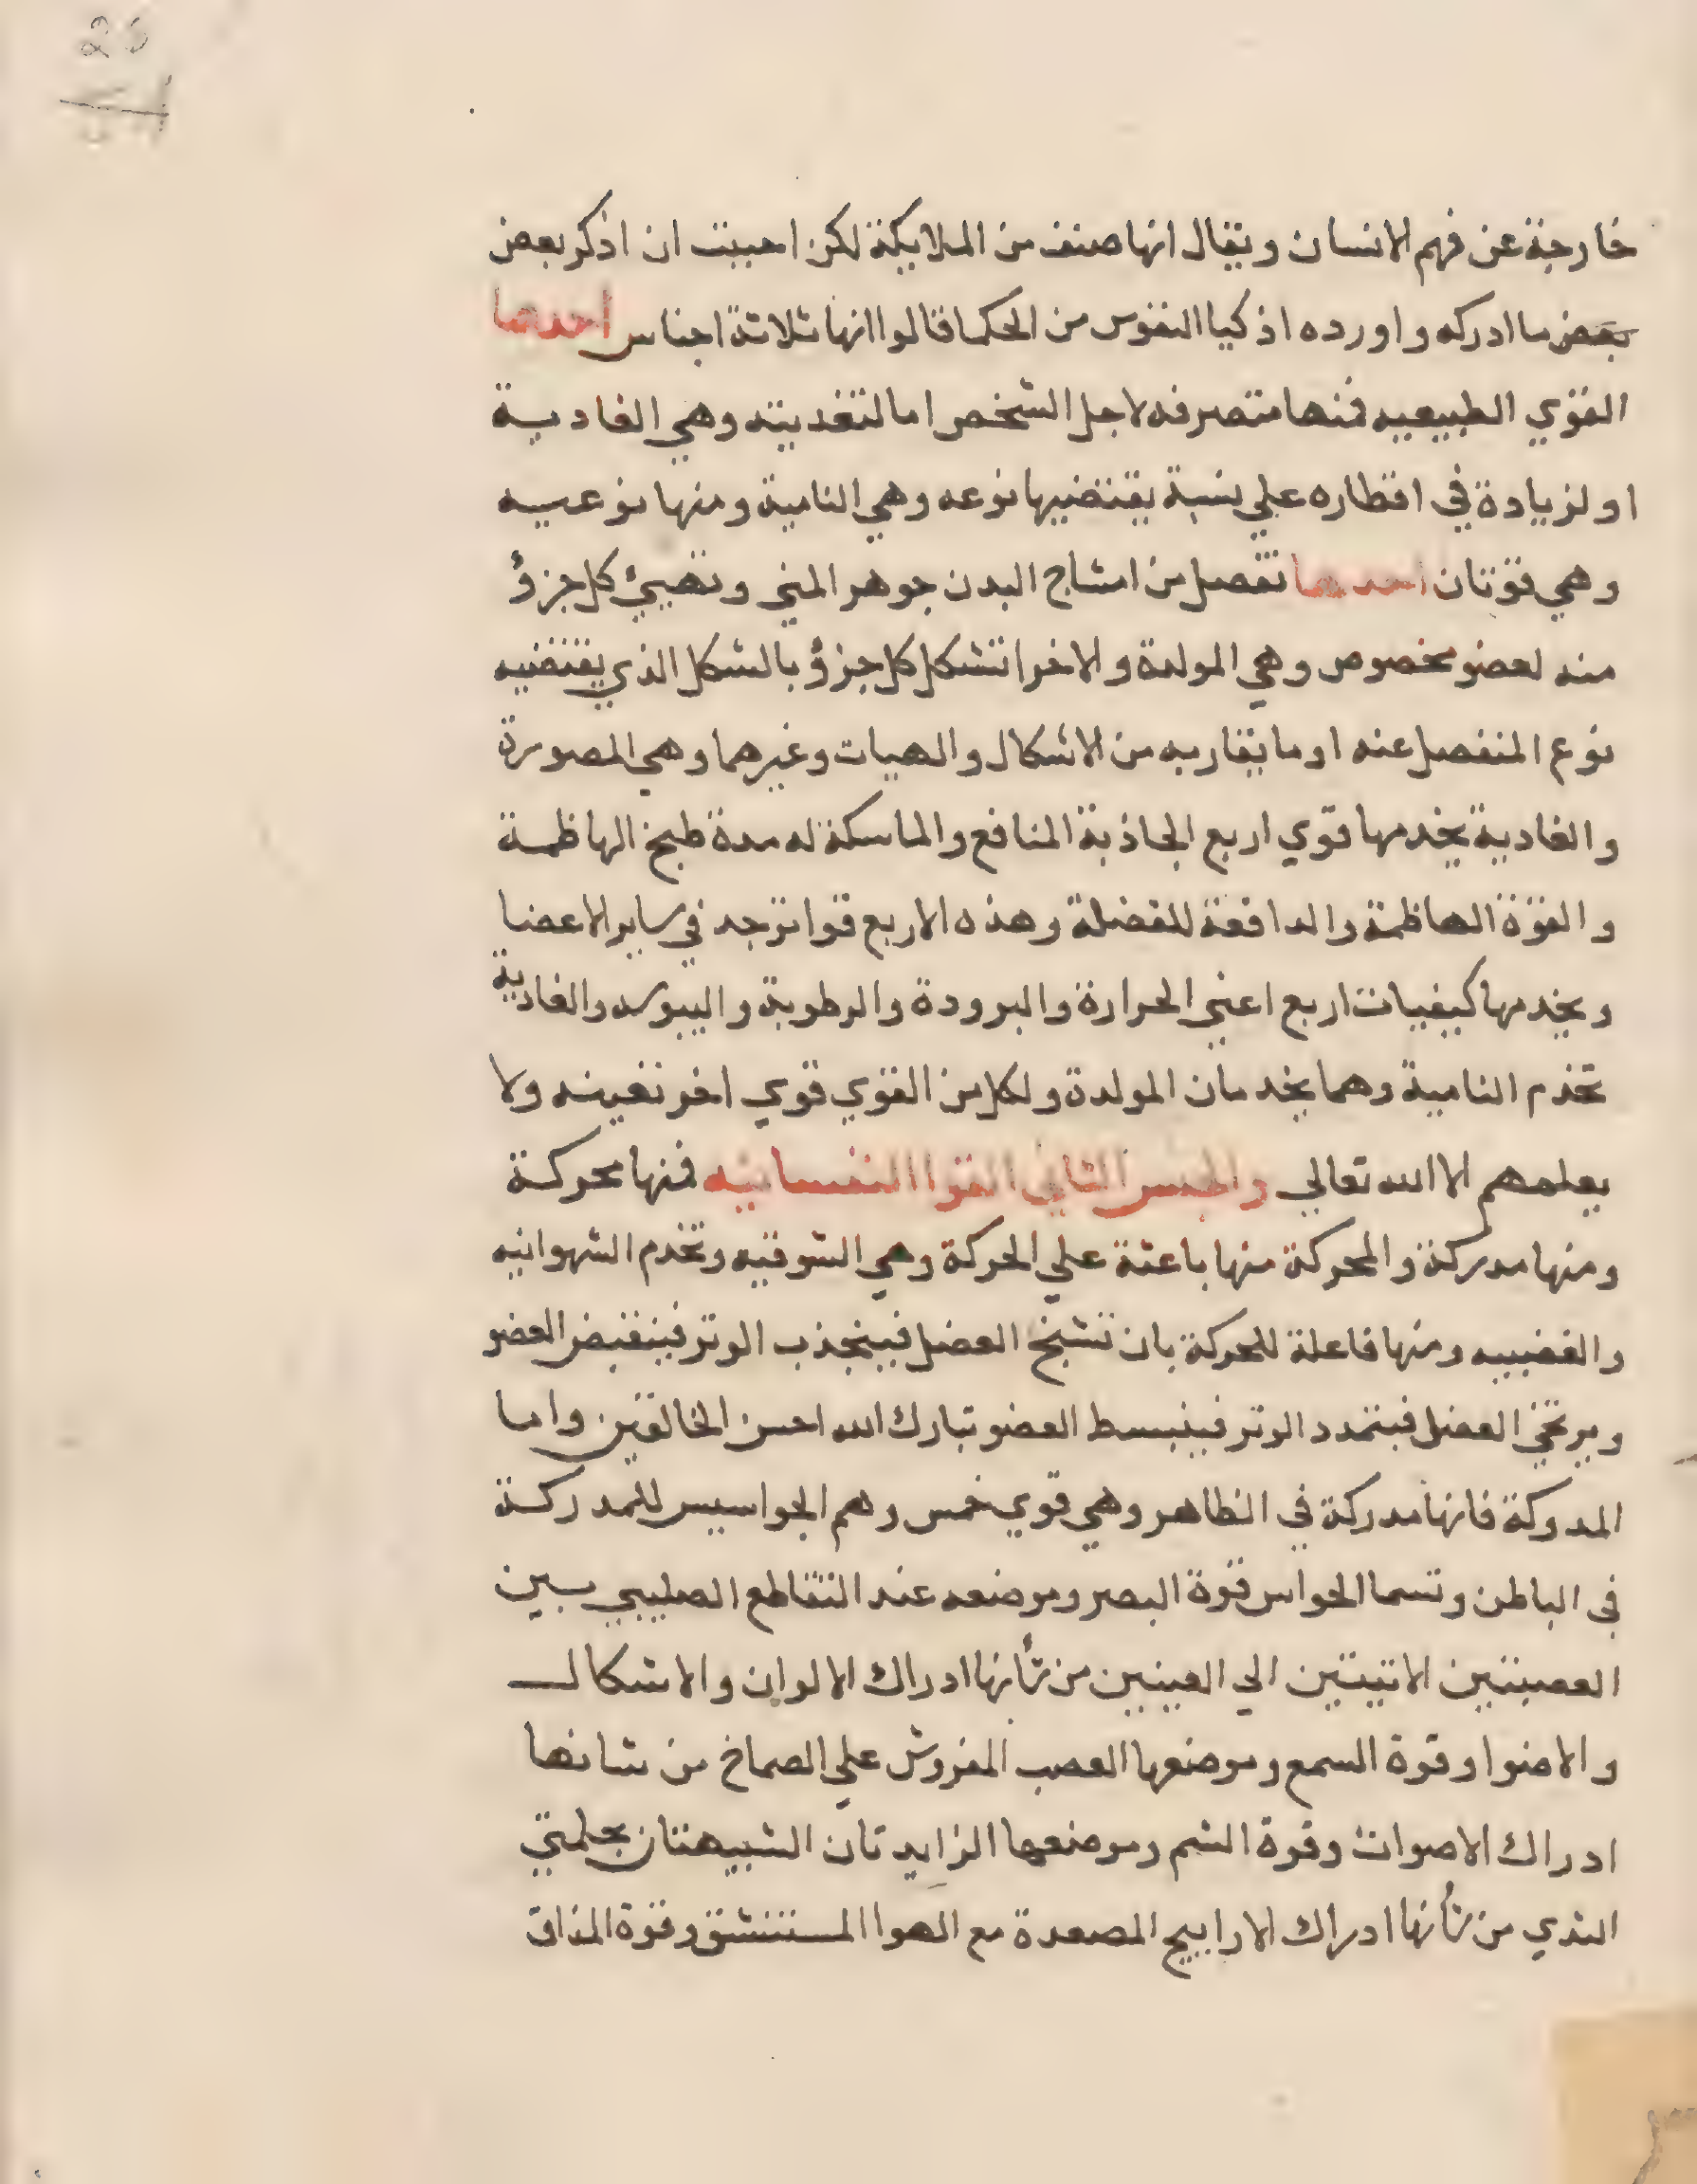 26
خارجة عن فهم الانسان ويقال انها صنف من الملايكة لكن احببت ان اذكر بعض
بعض ما ادركه واورده اذكيا النفوس من الحكما قالوا انها ثلاثة اجناس احدها
القوي الطبيعيه فمنها متصرفه لاجل الشخص اما لتغديته وهي الغاديـة
او لزيادة في اقطاره علي نسبة يقتضيها نوعه وهي النامية ومنها نوعيـه
وهي قوتان احدها تفصل من امشاج البدن جوهر المني وتهيئ كل جزؤ
منه لعضو مخصوص وهي المولدة والاخرا تشكل كل جزؤ بالشكل الذي يقتضيه
نوع المنفصل عنه او ما يقاربه من الاشكال والهيات وغيرهما وهي المصورة
والغادية يخدمها قوي اربع الجاذبة المنافع والماسكة له مدة طبخ الهاظمـة
والقوة الهاظمة والدافعة للفضلة وهذه الاربع قوا توجد في ساير الاعضا
ويخدمها كيفيات اربع اعني الحرارة والبرودة والرطوبة واليبوسه والغادية
تخدم النامية وهما يخدمان المولدة ولكل من القوي قوي اخر تعينه ولا
يعلمهم الا الله تعالي والجنس الثاني القوا النفسانيه فمنها محركـة
ومنها مدركة والمحركة منها باعثة علي الحركة وهي الشوقيه وتخدم الشهوانيه
والغضبيه ومنها فاعلة للحركة بان تشنج العضل فينجذب الوتر فينقبض العضو
ويرتخي العضل فيتمدد الوتر فينبسط العضو تبارك الله احسن الخالقين واما
المدركة فانها مدركة في الظاهر وهي قوي خمس وهم الجواسيس للمدركـة
في الباطن وتسما الحواس قوة البصر وموضعه عند التقاطع الصليبي بـين
العصبتين الاتيتين الي العينين من شأنها ادراك الالوان والاشكالـ
والاضوا وقوة السمع وموضعها العصب المفروش علي الصماخ من شانها
ادراك الاصوات وقوة الشم وموضعها الزايدتان الشبيهتان بحلمتي
الثدي من شأنها ادراك الاراييح المصعدة مع الهوا المستنشق وقوة المذاق